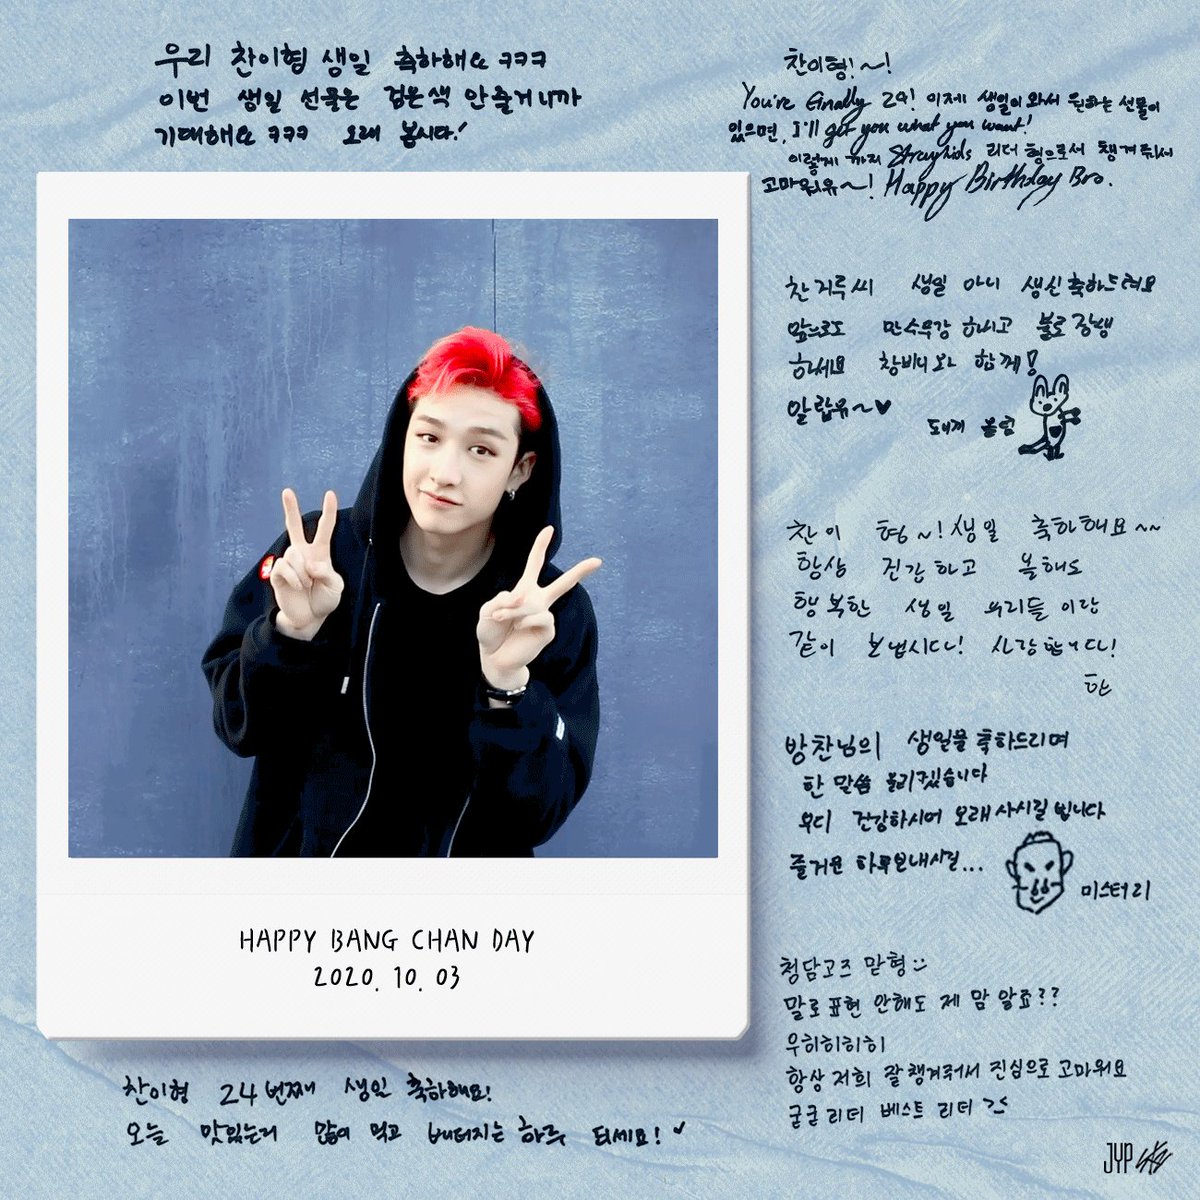 우리 찬이형 생일 축하해요 ㅋㅋㅋ
이번 생일 선물은 검은색 안줄거니까
기대해요 ㅋㅋㅋ 오래 봅시다!
찬이형!~!
You're finally 24! 이제 생일이 와서 원하는 선물이
있으면, I'll get you what you want!
이렇게 까지 Straykids 리더 형으로서 챙겨줘서
고마워유~! Happy Birthday Bro.
찬거루씨 생일 아니 생신축하드려요
앞으로도 만수무강 하시고 불로장생
하세요 창비니와 함께!
알랍유~♥
돼끼 올림
찬이 형~! 생일 축하해요~~
항상 건강하고 올해도
행복한 생일 우리들이랑
같이 보냅시다! 사랑합니다!
한
방찬님의 생일을 축하드리며
한 말씀 올리겠습니다
부디 건강하시어 오래사시길 빕니다
즐거운 하루보내시길...
미스터리
청담고즈 맏형 :)
말로표현 안해도 제 맘 알죠??
우히히히히
항상 저희 잘챙겨줘서 진심으로 고마워요
굳굳리더 베스트 리더 >.<
HAPPY BANG CHAN DAY
2020. 10. 03
찬이형 24번째 생일 축하해요!
오늘 맛있는거 많이 먹고 배터지는 하루 되세요!
JYP